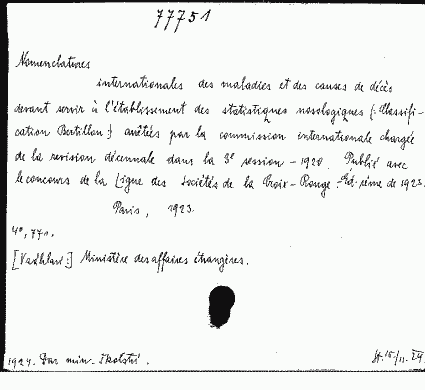 77751
Nomenclatures
internationales des maladies et des causes de décès
devant servir à l'établissement des statistiques nosologiques (: Classifi-
cation Bertillon :) arrêtés par la commission internationale chargée
de la revision décennale dans la 3e session - 1920. Publié avec
le concours de la Ligue des Sociétés de la Croix-Rouge. Ed. 2ème de 1923.
Paris, 1923.
4°, 771.
[Vazhlavi:] Ministère des affaires étrangères.
1924. Dar min.